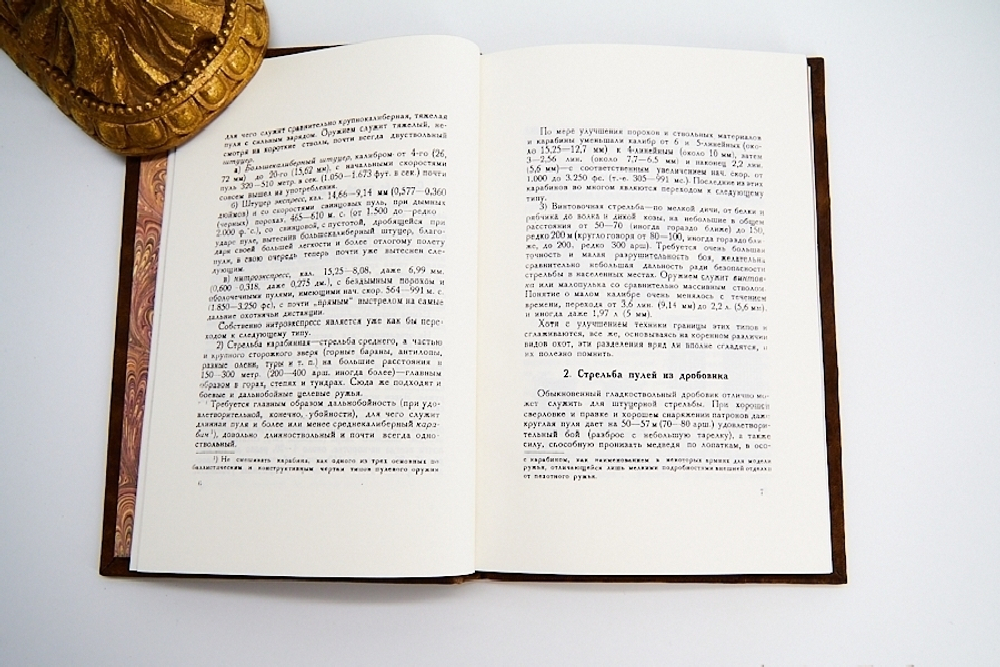 для чего служит сравнительно крупнокалиберная, тяжелая
пуля с сильным зарядом. Оружием служит тяжелый, не-
смотря на короткие стволы, почти всегда двуствольный
штуцер.
а) Большекалиберный штуцер, калибром от 4-го (26,
72 мм) до 20-го (15,62 мм), с начальными скоростями
пуль 320—510 метр. в сек. (1.050—1.673 фут. в сек.) почти
совсем вышел из употребления.
б) Штуцер экспресс, кал. 14,66—9,14 мм (0,577—0,360
дюймов) и со скоростями свинцовых пуль, при дымных
(черных) порохах, 465—610 м. с. (от 1.500 до—редко—
2.000 ф. с.), со свинцовой, с пустотой, дробящейся при
ударе пуле, вытеснил большекалиберный штуцер, благо-
даря своей большей легкости и более отлогому полету
пули, в свою очередь теперь почти уже вытеснен сле-
дующим.
в) нитроэкспресс, кал. 15,25—8,08, даже 6,99 мм.
(0,600—0,318, даже 0,275 дм.), с бездымным порохом и
оболочечными пулями, имеющими нач. скор. 564—991 м. с.
(1.850—3.250 фс), с почти „прямым" выстрелом на самые
дальние охотничьи дистанции.
Собственно нитроэкспресс является уже как бы пере-
ходом к следующему типу.
2) Стрельба карабинная—стрельба среднего, а частью
и крупного сторожкого зверя (горные бараны, антилопы,
разные олени, туры и т. п.) на большие расстояния в
150—300 метр. (200—400 арш. иногда более)—главным
образом в горах, степях и тундрах. Сюда же подходят и
боевые и дальнобойные целевые ружья.
Требуется главным образом дальнобойность (при удо-
влетворительной, конечно, убойности), для чего служит
длинная пуля и более или менее среднекалиберный кара-
бин¹), довольно длинноствольный и почти всегда одно-
ствольный.
¹) Не смешивать карабина, как одного из трех основных по
баллистическим и конструктивным чертам типов пулевого оружия
6
По мере улучшения порохов и ствольных материалов
и карабины уменьшали калибр от 6 и 5-линейных (око-
ло 15,25—12,7 мм) к 4-линейным (около 10 мм), затем
3—2,56 лин. (около 7,7—6,5 мм) и наконец 2,2 лин.
(5,6 мм)—с соответственным увеличением нач. скор. от
1.000 до 3.250 фс. (т.-е. 305—991 мс.). Последние из этих
карабинов во многом являются переходом к следующему
типу.
3) Винтовочная стрельба—по мелкой дичи, от белки и
рябчика до волка и дикой козы, на небольшие в общем
расстояния от 50—70 (иногда гораздо ближе) до 150,
редко 200 м (кругло говоря от 80—100, иногда гораздо бли-
же, до 200, редко 300 арш). Требуется очень большая
точность и малая разрушительность боя, желательна
сравнительно небольшая дальность ради безопасности
стрельбы в населенных местах. Оружием служит винтов-
ка или малопулька со сравнительно массивным стволом.
Понятие о малом калибре очень менялось с течением
времени, переходя от 3,6 лин. (9,14 мм) до 2,2 л. (5,6 мм).
и иногда даже 1,97 л (5 мм).
Хотя с улучшением техники границы этих типов и
сглаживаются, все же, основываясь на коренном различии
видов охот, эти разделения вряд ли вполне сгладятся, и
их полезно помнить.
2. Стрельба пулей из дробовика
Обыкновенный гладкоствольный дробовик отлично мо-
жет служить для штуцерной стрельбы. При хорошей
сверловке и правке и хорошем снаряжении патронов даже
круглая пуля дает на 50—57 м (70—80 арш) удовлетвори-
тельный бой (разброс с небольшую тарелку), а также
силу, способную пронизать медведя по лопаткам, в осо-
с карабином, как наименованием в некоторых армиях для модели
ружья, отличающейся лишь мелкими подробностями внешней отделки
от пехотного ружья.
7